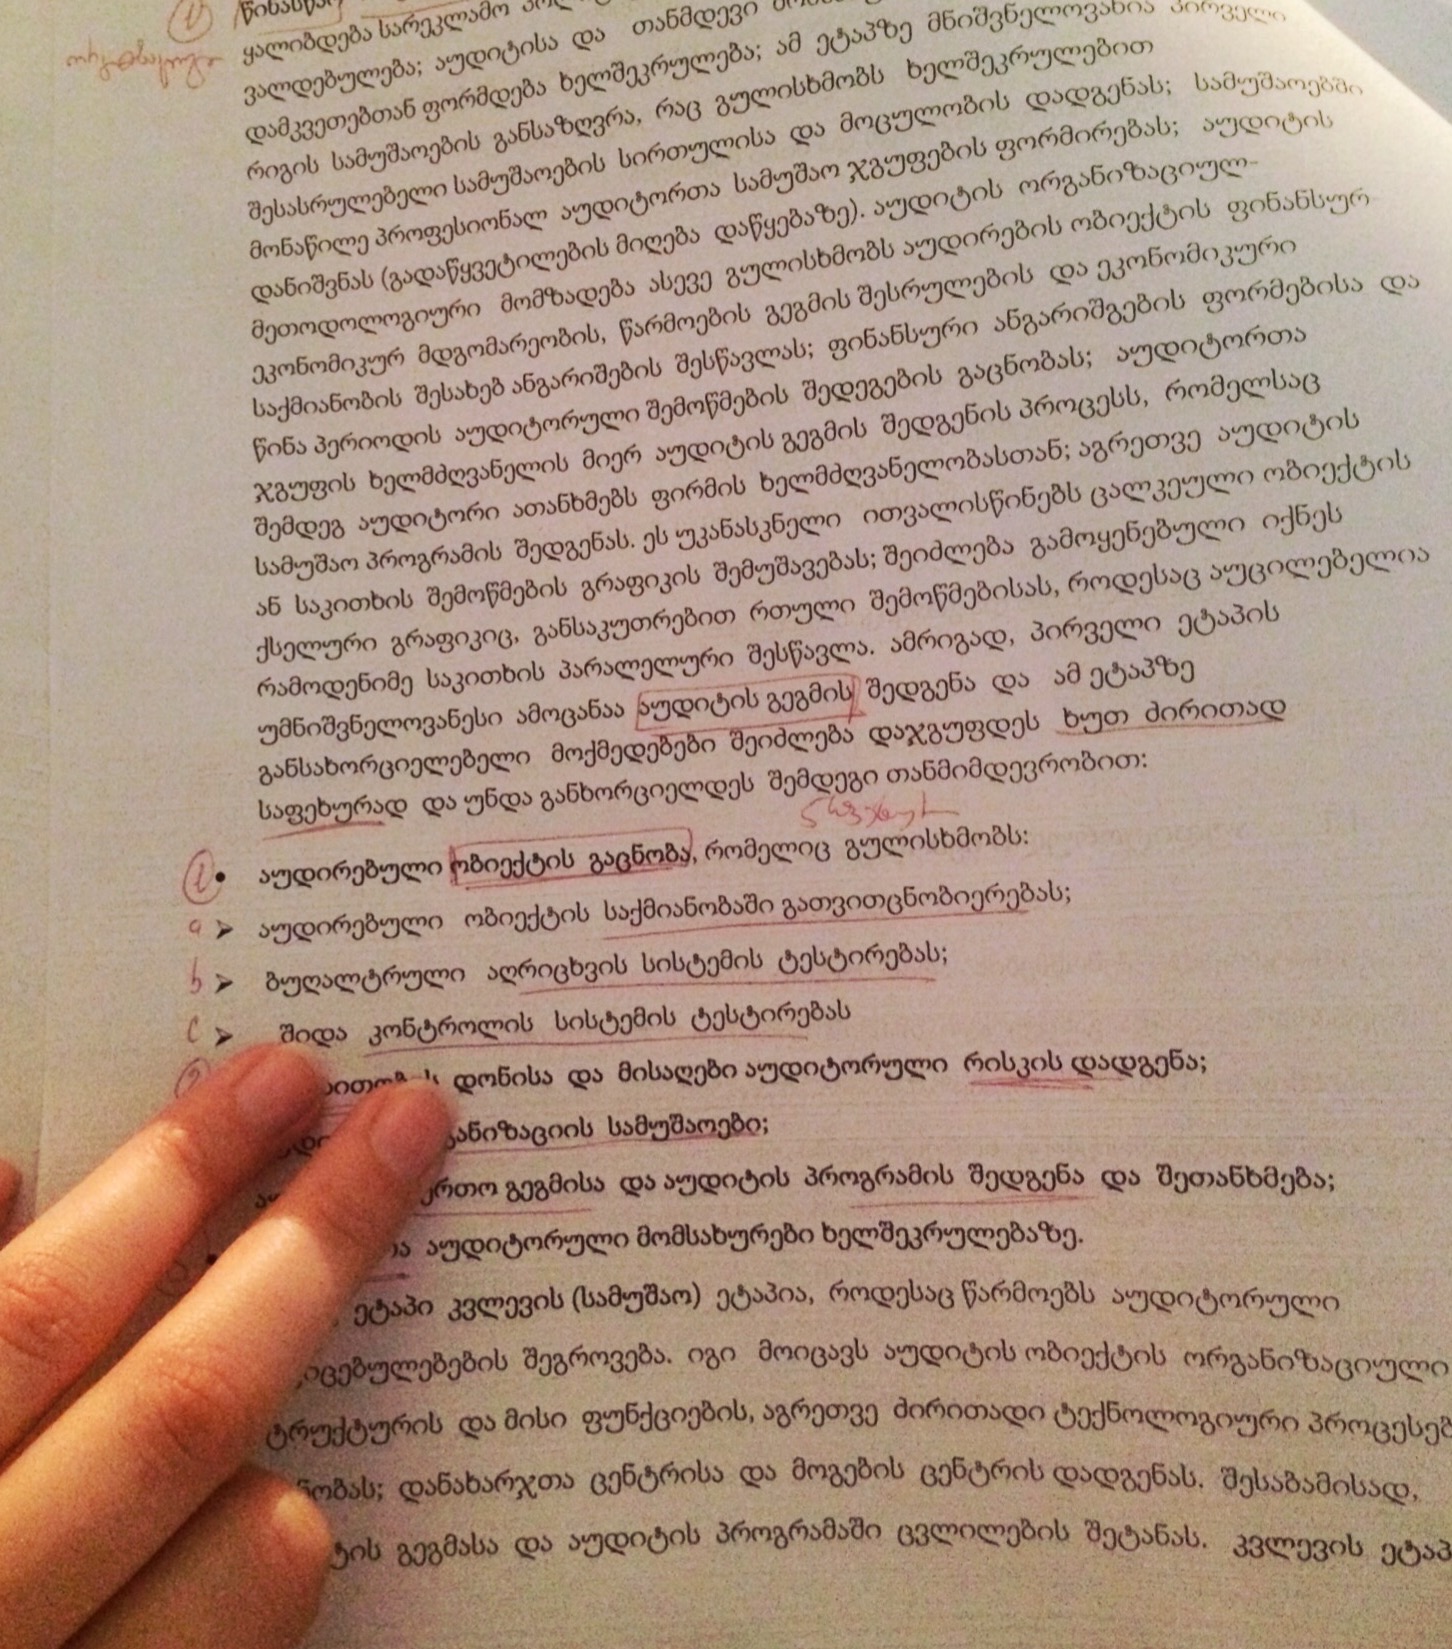 ყალიბდება სარეკლამო
ვალდებულება; აუდიტისა და თანმდევი
დამკვეთებთან ფორმდება ხელშეკრულება; ამ ეტაპზე მნიშვნელოვანია პირველი
რიგის სამუშაოების განსაზღვრა, რაც გულისხმობს ხელშეკრულებით
შესასრულებელი სამუშაოების სირთულისა და მოცულობის დადგენას; სამუშაოებში
მონაწილე პროფესიონალ აუდიტორთა სამუშაო ჯგუფების ფორმირებას; აუდიტის
დანიშვნას (გადაწყვეტილების მიღება დაწყებაზე). აუდიტის ორგანიზაციულ-
მეთოდოლოგიური მომზადება ასევე გულისხმობს აუდირების ობიექტის ფინანსურ-
ეკონომიკურ მდგომარეობის, წარმოების გეგმის შესრულების და ეკონომიკური
საქმიანობის შესახებ ანგარიშების შესწავლას; ფინანსური ანგარიშგების ფორმებისა და
წინა პერიოდის აუდიტორული შემოწმების შედეგების გაცნობას; აუდიტორთა
ჯგუფის ხელმძღვანელის მიერ აუდიტის გეგმის შედგენის პროცესს, რომელსაც
შემდეგ აუდიტორი ათანხმებს ფირმის ხელმძღვანელობასთან; აგრეთვე აუდიტის
სამუშაო პროგრამის შედგენას. ეს უკანასკნელი ითვალისწინებს ცალკეული ობიექტის
ან საკითხის შემოწმების გრაფიკის შემუშავებას; შეიძლება გამოყენებული იქნეს
ქსელური გრაფიკიც, განსაკუთრებით რთული შემოწმებისას, როდესაც აუცილებელია
რამოდენიმე საკითხის პარალელური შესწავლა. ამრიგად, პირველი ეტაპის
უმნიშვნელოვანესი ამოცანაა აუდიტის გეგმის შედგენა და ამ ეტაპზე
განსახორციელებელი მოქმედებები შეიძლება დაჯგუფდეს ხუთ ძირითად
საფეხურად და უნდა განხორციელდეს შემდეგი თანმიმდევრობით:
① • აუდირებული ობიექტის გაცნობა, რომელიც გულისხმობს:
a ➤ აუდირებული ობიექტის საქმიანობაში გათვითცნობიერებას;
b ➤ ბუღალტრული აღრიცხვის სისტემის ტესტირებას;
c ➤ შიდა კონტროლის სისტემის ტესტირებას
② დონისა და მისაღები აუდიტორული რისკის დადგენა;
სამუშაოები;
გეგმისა და აუდიტის პროგრამის შედგენა და შეთანხმება;
• აუდიტორული მომსახურები ხელშეკრულებაზე.
ეტაპი კვლევის (სამუშაო) ეტაპია, როდესაც წარმოებს აუდიტორული
შეგროვება. იგი მოიცავს აუდიტის ობიექტის ორგანიზაციული
ტრუქტურის და მისი ფუნქციების, აგრეთვე ძირითადი ტექნოლოგიური პროცესებ
დანახარჯთა ცენტრისა და მოგების ცენტრის დადგენას. შესაბამისად,
გეგმასა და აუდიტის პროგრამაში ცვლილების შეტანას. კვლევის ეტაპ